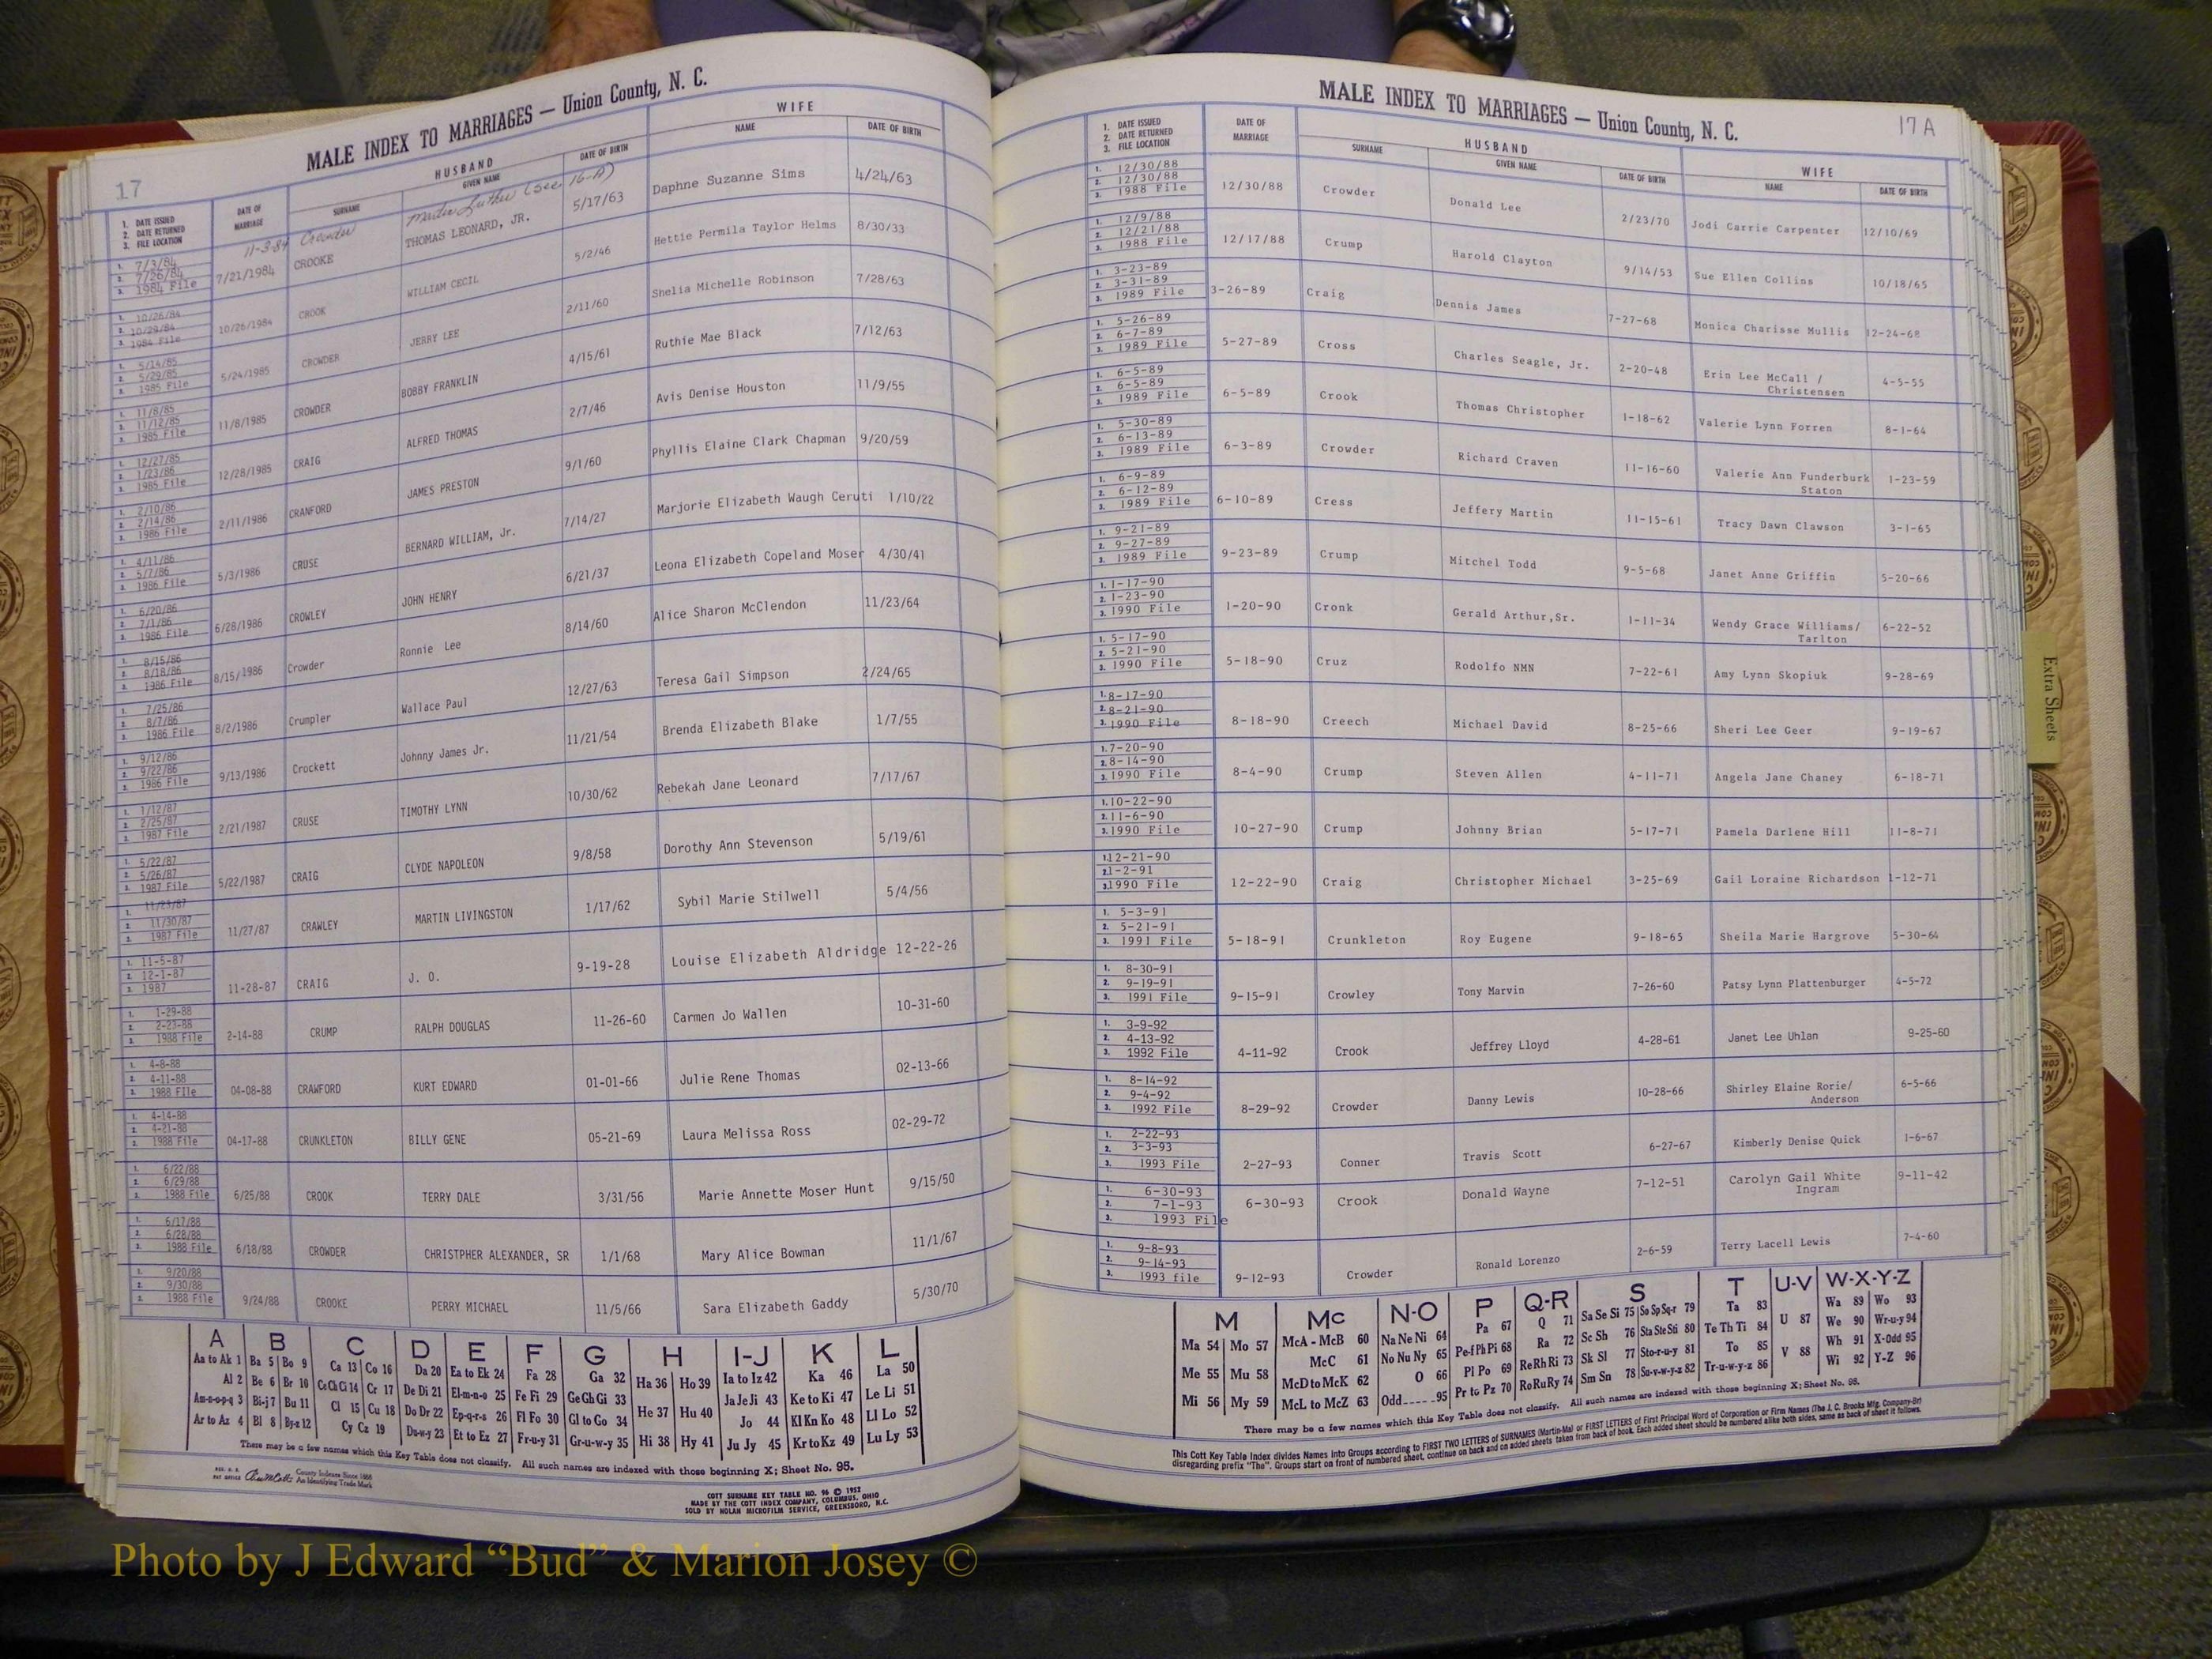 MALE INDEX TO MARRIAGES — Union County, N. C.
17
1. DATE ISSUED
2. DATE RETURNED
3. FILE LOCATION
DATE OF MARRIAGE
HUSBAND
SURNAME
GIVEN NAME
DATE OF BIRTH
WIFE
NAME
DATE OF BIRTH
11-3-84 Crowder Martin Luther (See 16-A)
1. 7/3/84 2. 7/26/84 3. 1984 File 7/21/1984 CROOKE THOMAS LEONARD, JR. 5/17/63 Daphne Suzanne Sims 4/24/63
1. 10/26/84 2. 10/29/84 3. 1984 File 10/26/1984 CROOK WILLIAM CECIL 5/2/46 Hettie Permila Taylor Helms 8/30/33
1. 5/14/85 2. 5/29/85 3. 1985 File 5/24/1985 CROWDER JERRY LEE 2/11/60 Shelia Michelle Robinson 7/28/63
1. 11/8/85 2. 11/12/85 3. 1985 File 11/8/1985 CROWDER BOBBY FRANKLIN 4/15/61 Ruthie Mae Black 7/12/63
1. 12/27/85 2. 1/23/86 3. 1985 File 12/28/1985 CRAIG ALFRED THOMAS 2/7/46 Avis Denise Houston 11/9/55
1. 2/10/86 2. 2/14/86 3. 1986 File 2/11/1986 CRANFORD JAMES PRESTON 9/1/60 Phyllis Elaine Clark Chapman 9/20/59
1. 4/11/86 2. 5/7/86 3. 1986 File 5/3/1986 CRUSE BERNARD WILLIAM, Jr. 7/14/27 Marjorie Elizabeth Waugh Ceruti 1/10/22
1. 6/20/86 2. 7/1/86 3. 1986 File 6/28/1986 CROWLEY JOHN HENRY 6/21/37 Leona Elizabeth Copeland Moser 4/30/41
1. 8/15/86 2. 8/18/86 3. 1986 File 8/15/1986 Crowder Ronnie Lee 8/14/60 Alice Sharon McClendon 11/23/64
1. 7/25/86 2. 8/7/86 3. 1986 File 8/2/1986 Crumpler Wallace Paul 12/27/63 Teresa Gail Simpson 2/24/65
1. 9/12/86 2. 9/22/86 3. 1986 File 9/13/1986 Crockett Johnny James Jr. 11/21/54 Brenda Elizabeth Blake 1/7/55
1. 1/12/87 2. 2/25/87 3. 1987 File 2/21/1987 CRUSE TIMOTHY LYNN 10/30/62 Rebekah Jane Leonard 7/17/67
1. 5/22/87 2. 5/26/87 3. 1987 File 5/22/1987 CRAIG CLYDE NAPOLEON 9/8/58 Dorothy Ann Stevenson 5/19/61
1. 11/23/87 2. 11/30/87 3. 1987 File 11/27/87 CRAWLEY MARTIN LIVINGSTON 1/17/62 Sybil Marie Stilwell 5/4/56
1. 11-5-87 2. 12-1-87 3. 1987 11-28-87 CRAIG J. O. 9-19-28 Louise Elizabeth Aldridge 12-22-26
1. 1-29-88 2. 2-23-88 3. 1988 File 2-14-88 CRUMP RALPH DOUGLAS 11-26-60 Carmen Jo Wallen 10-31-60
1. 4-8-88 2. 4-11-88 3. 1988 FIle 04-08-88 CRAWFORD KURT EDWARD 01-01-66 Julie Rene Thomas 02-13-66
1. 4-14-88 2. 4-21-88 3. 1988 File 04-17-88 CRUNKLETON BILLY GENE 05-21-69 Laura Melissa Ross 02-29-72
1. 6/22/88 2. 6/29/88 3. 1988 File 6/25/88 CROOK TERRY DALE 3/31/56 Marie Annette Moser Hunt 9/15/50
1. 6/17/88 2. 6/28/88 3. 1988 File 6/18/88 CROWDER CHRISTPHER ALEXANDER, SR 1/1/68 Mary Alice Bowman 11/1/67
1. 9/20/88 2. 9/30/88 3. 1988 File 9/24/88 CROOKE PERRY MICHAEL 11/5/66 Sara Elizabeth Gaddy 5/30/70
A B C D E F G H I-J K L
Aa to Ak 1 Ba 5 Bo 9 Ca 13 Co 16 Da 20 Ea to Ek 24 Fa 28 Ga 32 Ha 36 Ho 39 Ia to Iz 42 Ka 46 La 50
Al 2 Be 6 Br 10 Ce Ch Ci 14 Cr 17 De Di 21 El-m-n-o 25 Fe Fi 29 Ge Gh Gi 33 Ja Je Ji 43 Ke to Ki 47 Le Li 51
Am-n-o-p-q 3 Bi-j 7 Bu 11 Cl 15 Cu 18 Do Dr 22 Ep-q-r-s 26 Fl Fo 30 Gl to Go 34 He 37 Hu 40 Jo 44 Kl Kn Ko 48 Ll Lo 52
Ar to Az 4 Bl 8 By-z 12 Cy Cz 19 Du-w-y 23 Et to Ez 27 Fr-u-y 31 Gr-u-w-y 35 Hi 38 Hy 41 Ju Jy 45 Kr to Kz 49 Lu Ly 53
There may be a few names which this Key Table does not classify. All such names are indexed with those beginning X; Sheet No. 95.
County Indexes Since 1888
An Identifying Trade Mark
COTT SURNAME KEY TABLE NO. 96 © 1952
MADE BY THE COTT INDEX COMPANY, COLUMBUS, OHIO
SOLD BY NOLAN MICROFILM SERVICE, GREENSBORO, N.C.
MALE INDEX TO MARRIAGES — Union County, N. C.
17 A
1. DATE ISSUED
2. DATE RETURNED
3. FILE LOCATION
DATE OF MARRIAGE
HUSBAND
SURNAME
GIVEN NAME
DATE OF BIRTH
WIFE
NAME
DATE OF BIRTH
1. 12/30/88 2. 12/30/88 3. 1988 File 12/30/88 Crowder Donald Lee 2/23/70 Jodi Carrie Carpenter 12/10/69
1. 12/9/88 2. 12/21/88 3. 1988 File 12/17/88 Crump Harold Clayton 9/14/53 Sue Ellen Collins 10/18/65
1. 3-23-89 2. 3-31-89 3. 1989 File 3-26-89 Craig Dennis James 7-27-68 Monica Charisse Mullis 12-24-68
1. 5-26-89 2. 6-7-89 3. 1989 File 5-27-89 Cross Charles Seagle, Jr. 2-20-48 Erin Lee McCall / Christensen 4-5-55
1. 6-5-89 2. 6-5-89 3. 1989 File 6-5-89 Crook Thomas Christopher 1-18-62 Valerie Lynn Forren 8-1-64
1. 5-30-89 2. 6-13-89 3. 1989 File 6-3-89 Crowder Richard Craven 11-16-60 Valerie Ann Funderburk Staton 1-23-59
1. 6-9-89 2. 6-12-89 3. 1989 File 6-10-89 Cress Jeffery Martin 11-15-61 Tracy Dawn Clawson 3-1-65
1. 9-21-89 2. 9-27-89 3. 1989 File 9-23-89 Crump Mitchel Todd 9-5-68 Janet Anne Griffin 5-20-66
1. 1-17-90 2. 1-23-90 3. 1990 File 1-20-90 Cronk Gerald Arthur,Sr. 1-11-34 Wendy Grace Williams/ Tarlton 6-22-52
1. 5-17-90 2. 5-21-90 3. 1990 File 5-18-90 Cruz Rodolfo NMN 7-22-61 Amy Lynn Skopiuk 9-28-69
1. 8-17-90 2. 8-21-90 3. 1990 File 8-18-90 Creech Michael David 8-25-66 Sheri Lee Geer 9-19-67
1. 7-20-90 2. 8-14-90 3. 1990 File 8-4-90 Crump Steven Allen 4-11-71 Angela Jane Chaney 6-18-71
1. 10-22-90 2. 11-6-90 3. 1990 File 10-27-90 Crump Johnny Brian 5-17-71 Pamela Darlene Hill 11-8-71
1. 12-21-90 2. 1-2-91 3. 1990 File 12-22-90 Craig Christopher Michael 3-25-69 Gail Loraine Richardson 1-12-71
1. 5-3-91 2. 5-21-91 3. 1991 File 5-18-91 Crunkleton Roy Eugene 9-18-65 Sheila Marie Hargrove 5-30-64
1. 8-30-91 2. 9-19-91 3. 1991 File 9-15-91 Crowley Tony Marvin 7-26-60 Patsy Lynn Plattenburger 4-5-72
1. 3-9-92 2. 4-13-92 3. 1992 File 4-11-92 Crook Jeffrey Lloyd 4-28-61 Janet Lee Uhlan 9-25-60
1. 8-14-92 2. 9-4-92 3. 1992 File 8-29-92 Crowder Danny Lewis 10-28-66 Shirley Elaine Rorie/ Anderson 6-5-66
1. 2-22-93 2. 3-3-93 3. 1993 File 2-27-93 Conner Travis Scott 6-27-67 Kimberly Denise Quick 1-6-67
1. 6-30-93 2. 7-1-93 3. 1993 File 6-30-93 Crook Donald Wayne 7-12-51 Carolyn Gail White Ingram 9-11-42
1. 9-8-93 2. 9-14-93 3. 1993 file 9-12-93 Crowder Ronald Lorenzo 2-6-59 Terry Lacell Lewis 7-4-60
M Mc N-O P Q-R S T U-V W-X-Y-Z
Ma 54 Mo 57 McA - McB 60 Na Ne Ni 64 Pa 67 Q 71 Sa Se Si 75 So Sp Sq-r 79 Ta 83 U 87 Wa 89 Wo 93
Me 55 Mu 58 McC 61 No Nu Ny 65 Pe-f Ph Pi 68 Ra 72 Sc Sh 76 Sta Ste Sti 80 Te Th Ti 84 We 90 Wr-u-y 94
McD to McK 62 O 66 Pl Po 69 Re Rh Ri 73 Sk Sl 77 Sto-r-u-y 81 To 85 V 88 Wh 91 X-Odd 95
Mi 56 My 59 McL to McZ 63 Odd.....95 Pr to Pz 70 Ro Ru Ry 74 Sm Sn 78 Su-v-w-y-z 82 Tr-u-w-y-z 86 Wi 92 Y-Z 96
There may be a few names which this Key Table does not classify. All such names are indexed with those beginning X; Sheet No. 95.
This Cott Key Table Index divides Names into Groups according to FIRST TWO LETTERS of SURNAMES (Martin-Ma) or FIRST LETTERS of First Principal Word of Corporation or Firm Names (The J. C. Brooks Mfg. Company-Br)
disregarding prefix "The". Groups start on front of numbered sheet, continue on back and on added sheets taken from back of book. Each added sheet should be numbered alike both sides, same as back of sheet it follows.
Extra Sheets
Photo by J Edward “Bud” & Marion Josey ©